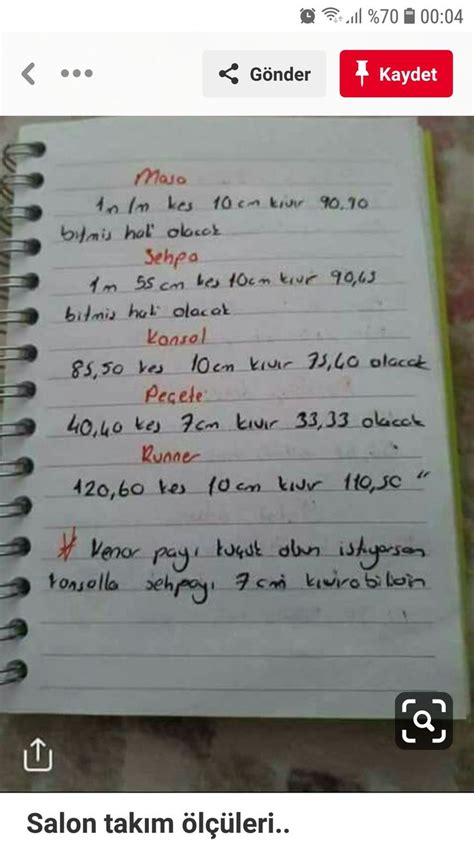 %70 00:04
Gönder
Kaydet
Masa
1m 1m kes 10cm kıvır 90,90
bitmiş hali olacak
Sehpa
1m 55cm kes 10cm kıvır 90,45
bitmiş hali olacak
Konsol
85,50 kes 10cm kıvır 75,40 olacak
Peçete
40,40 kes 7cm kıvır 33,33 olacak
Runner
120,60 kes 10cm kıvır 110,50 "
* Kenar payı küçük olsun istiyorsan
konsolla sehpayı 7cm kıvırabilin
Salon takım ölçüleri..